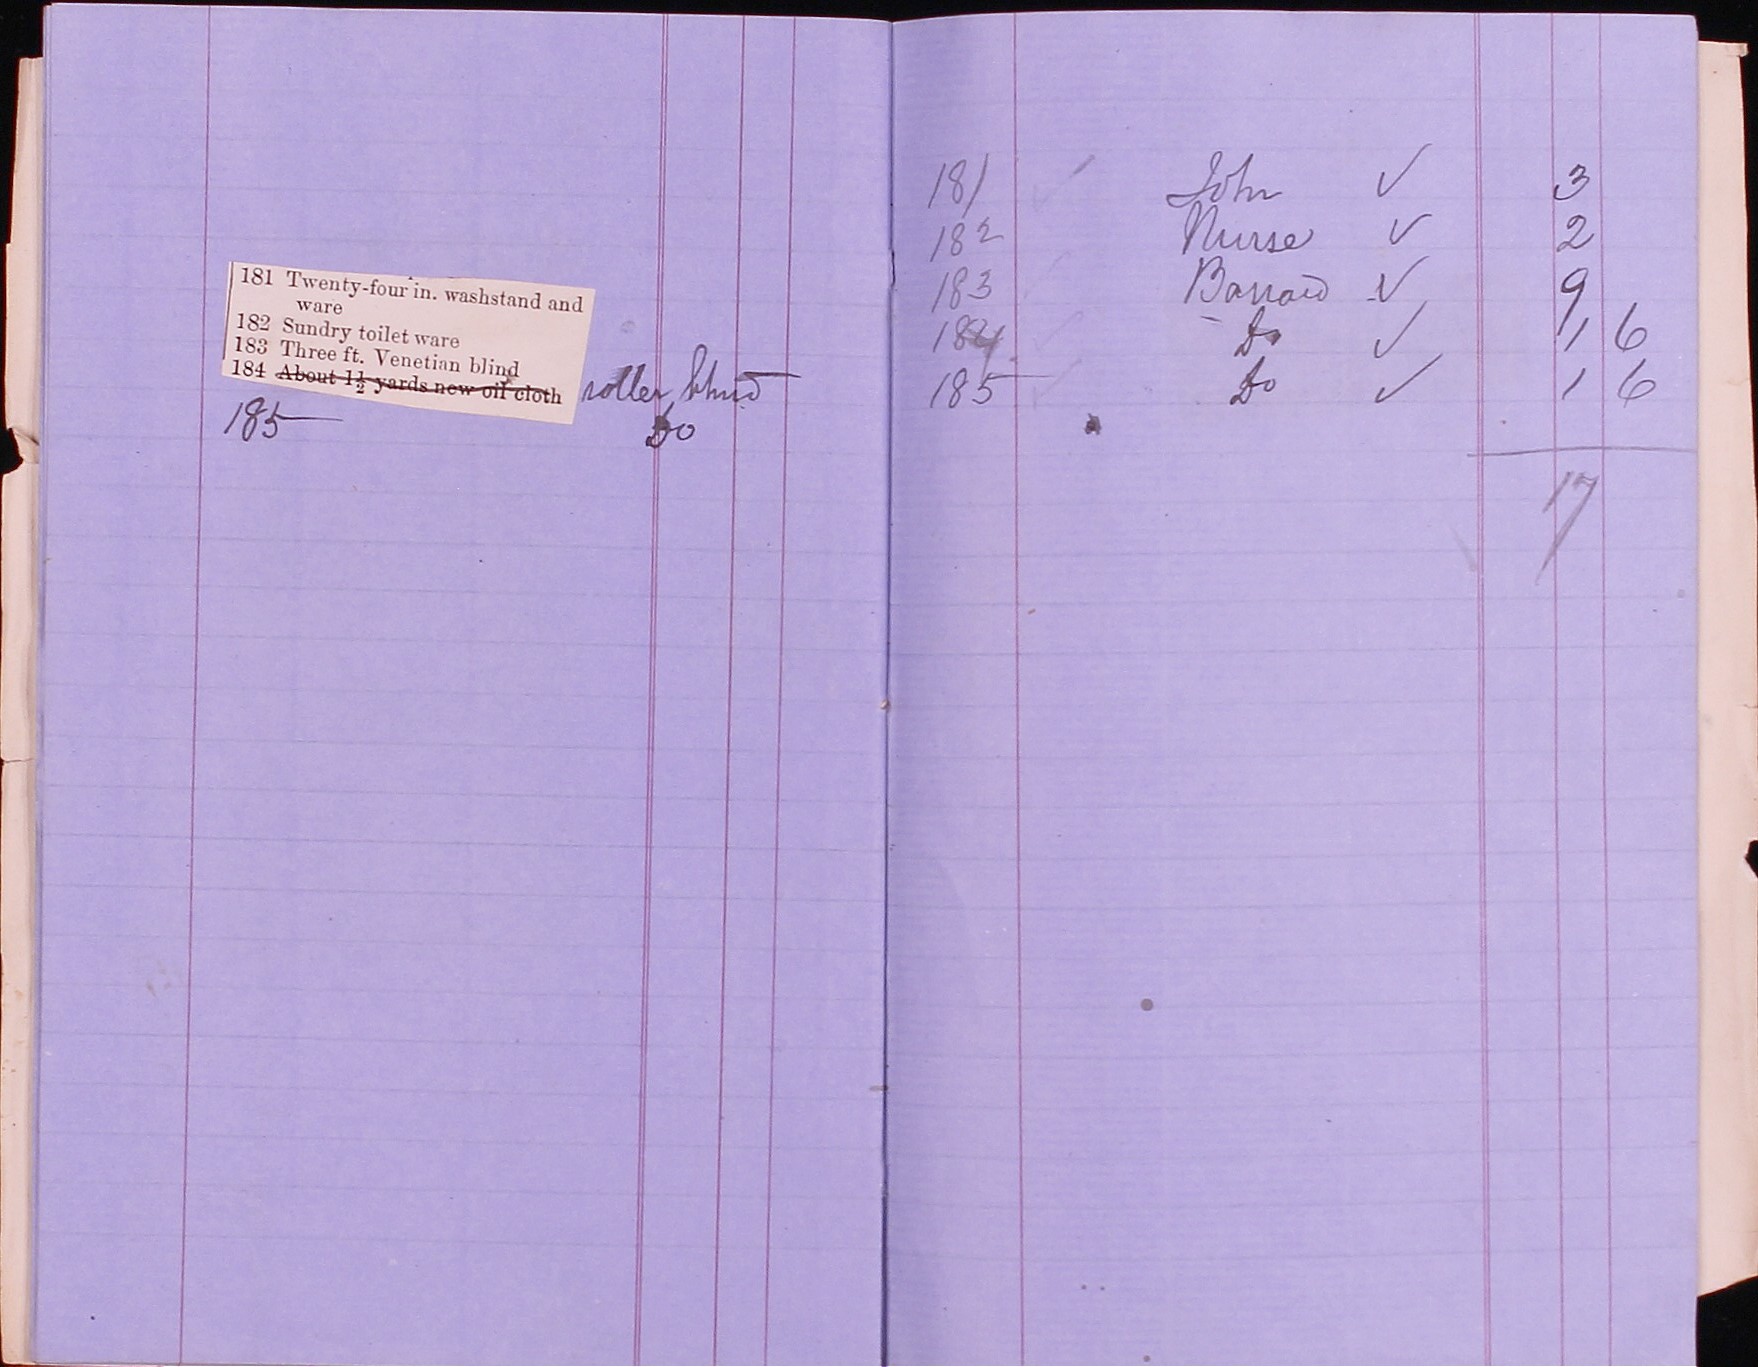 181 Twenty-four in. washstand and
ware
182 Sundry toilet ware
183 Three ft. Venetian blind
184 About 1½ yards new oil cloth roller blind
185 Do
181 John ✓ 3
182 Nurse ✓ 2
183 ✓ 9
184 Do ✓ 1 6
185 Do ✓ 1 6
17